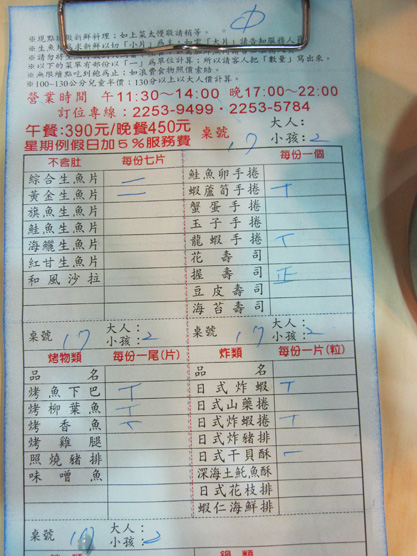 中
※現點現做新鮮料理：如上菜太慢敬請稍等。
※以下的菜單有部份以「一」為單位計算；所以請客人把「數量」寫出來。
※無限續點吃到飽為止；如浪費食物照價索賠。
※100~130公分兒童半價：130分以上以大人價計算。
營業時間 午11:30~14:00 晚17:00~22:00
訂位專線：2253-9499·2253-5784
午餐:390元/晚餐450元
星期例假日加5%服務費
桌號 17 大人：
小孩：2
不含肚 每份七片
綜合生魚片 二
黃金生魚片 二
旗魚生魚片
鮭魚生魚片
海鱺生魚片
紅甘生魚片
和風沙拉
每份一個
鮭魚卵手捲
蝦蘆筍手捲 丁
蟹蛋手捲
玉子手捲
龍蝦手捲 丁
花壽司
握壽司 正
豆皮壽司
海苔壽司
桌號 17 大人：
小孩：2
烤物類 每份一尾(片)
品名
烤魚下巴 丁
烤柳葉魚 丁
烤香魚 丁
烤雞腿
照燒豬排
味噌魚
桌號 17 大人：
小孩：2
炸類 每份一片(粒)
品名
日式炸蝦 丁
日式山藥捲
日式炸蝦捲 丁
日式炸豬排
日式干貝酥 一
深海土魠魚酥
日式花枝排
蝦仁海鮮排
桌號 17 大人：
小孩：2